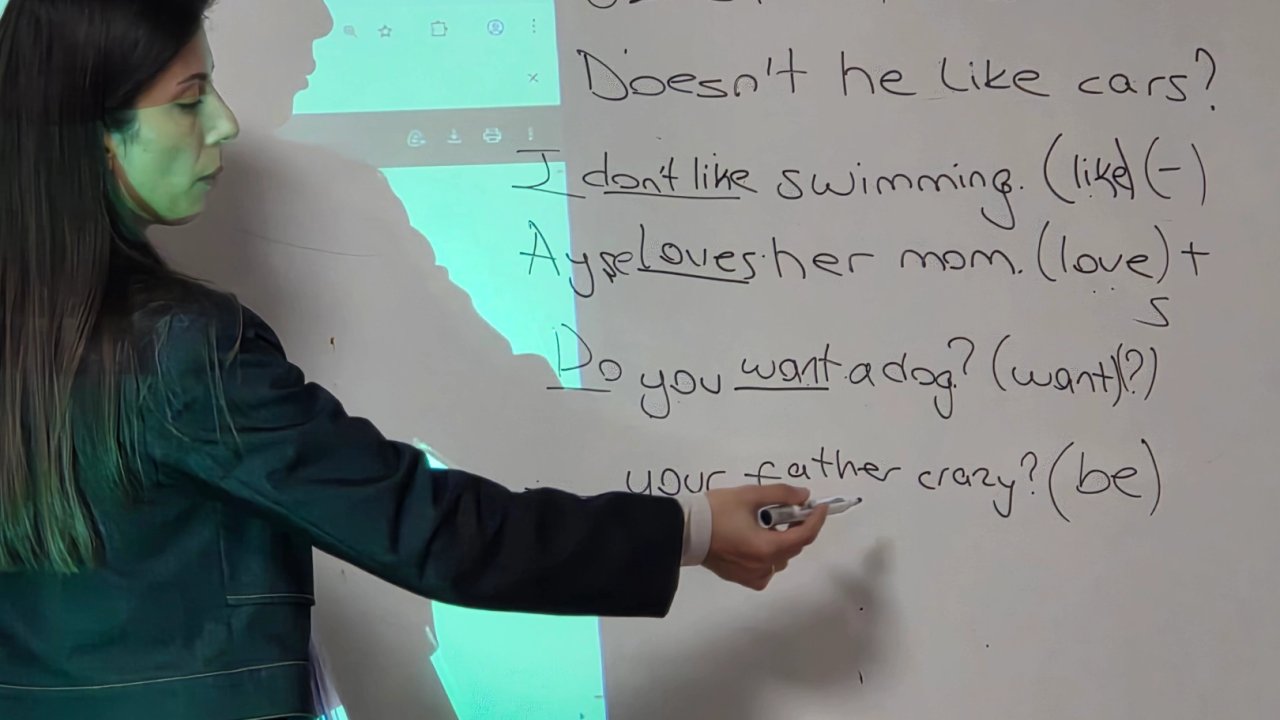 Doesn't he like cars?
I don't like swimming. (like) (-)
Ayse loves her mom. (love) +
s
Do you want a dog? (want) (?)
your father crazy? (be)